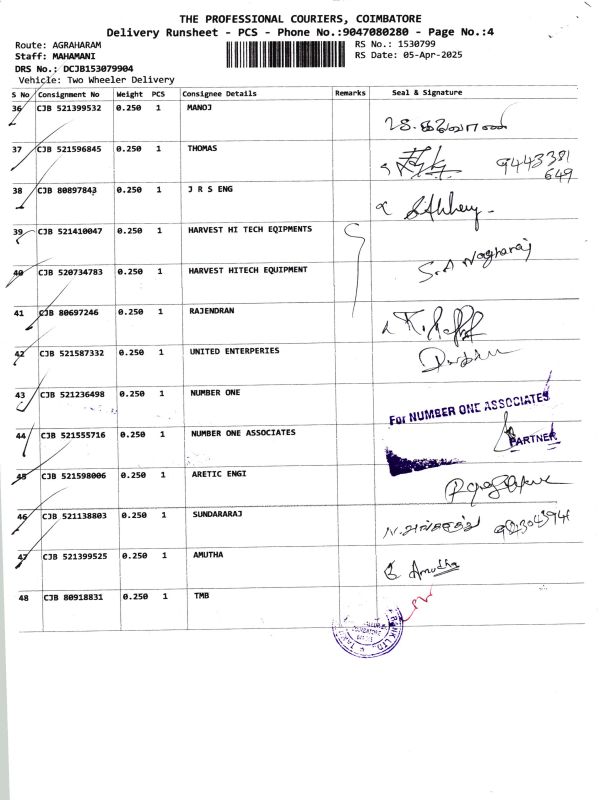 THE PROFESSIONAL COURIERS, COIMBATORE
Delivery Runsheet - PCS - Phone No.:9047080280 - Page No.:4
Route: AGRAHARAM
RS No.: 1530799
Staff: MAHAMANI
RS Date: 05-Apr-2025
DRS No.: DCJB153079904
Vehicle: Two Wheeler Delivery
S No Consignment No Weight PCS Consignee Details Remarks Seal & Signature
36 CJB 521399532 0.250 1 MANOJ
37 CJB 521596845 0.250 1 THOMAS 9443381
649
38 CJB 80897843 0.250 1 J R S ENG
39 CJB 521410047 0.250 1 HARVEST HI TECH EQIPMENTS
S.A Nagharaj
40 CJB 520734783 0.250 1 HARVEST HITECH EQUIPMENT
41 CJB 80697246 0.250 1 RAJENDRAN
42 CJB 521587332 0.250 1 UNITED ENTERPERIES
43 CJB 521236498 0.250 1 NUMBER ONE
For NUMBER ONE ASSOCIATES
44 CJB 521555716 0.250 1 NUMBER ONE ASSOCIATES PARTNER
45 CJB 521598006 0.250 1 ARETIC ENGI
46 CJB 521138803 0.250 1 SUNDARARAJ
47 CJB 521399525 0.250 1 AMUTHA Amutha
48 CJB 80918831 0.250 1 TMB
BANK LTD.